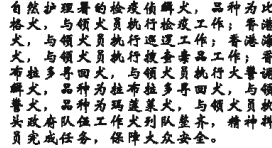 自然护理署的检疫侦缉犬，品种为比
格犬，与领犬员执行检疫工作；香港海
犬，与领犬员执行巡逻工作；香港
犬，与领犬员执行搜查毒品工作；
布拉多寻回犬，与领犬员执行大警
犬，品种为拉布拉多寻回犬，与领
警犬，品种为玛莲莱犬，与领犬员
头政府队伍工作犬列队整齐，精神抖
员完成任务，保障大众安全。